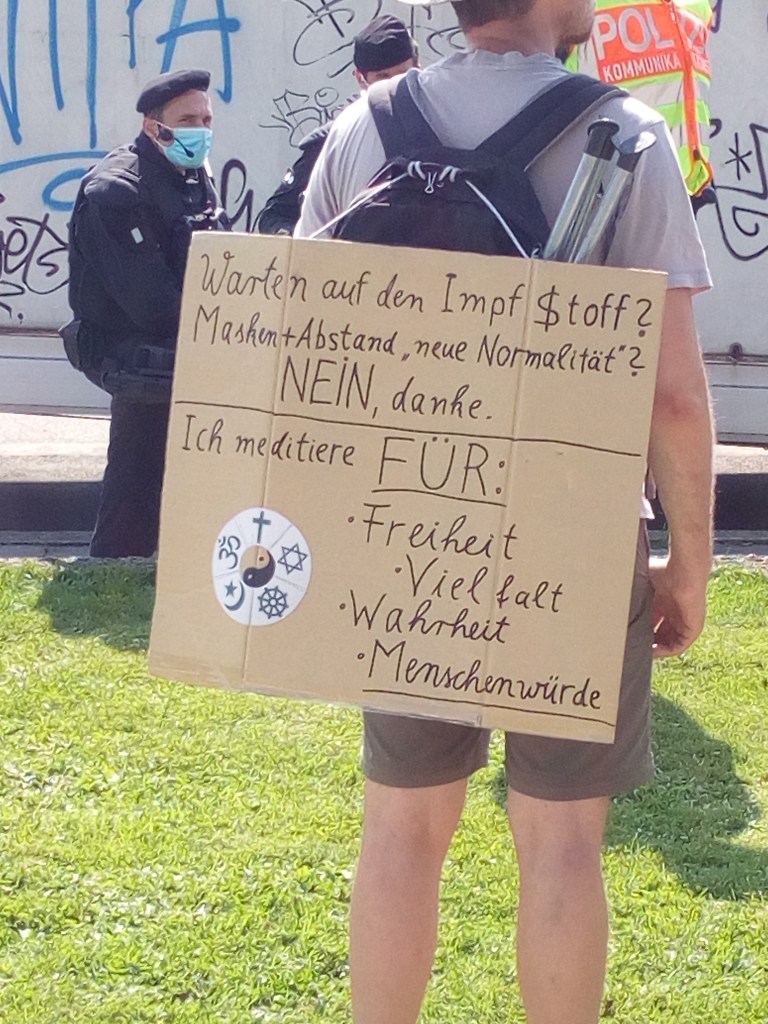 POLIZ
KOMMUNIKA
Warten auf den Impf $toff?
Masken+Abstand „neue Normalität"?
NEIN, danke.
Ich meditiere FÜR:
·Freiheit
·Vielfalt
·Wahrheit
·Menschenwürde